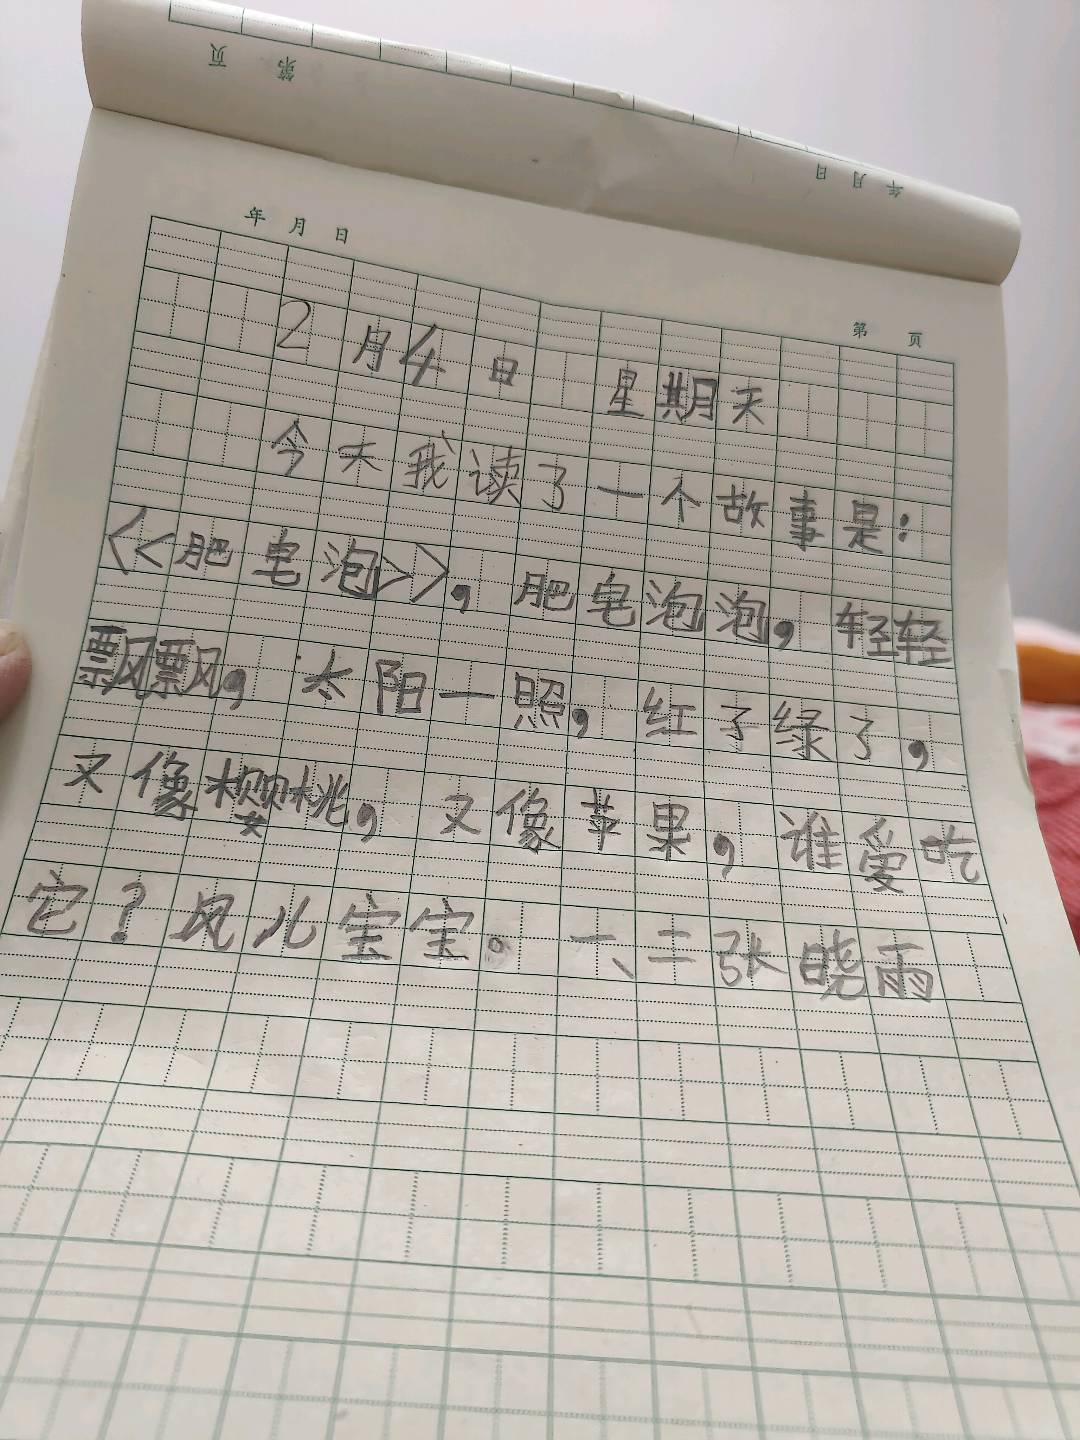 页 第
年 月 日
年 月 日
第 页
2月4日 星期天
今天我读了一个故事是：
<<肥皂泡>>，肥皂泡泡，轻轻
飘飘，太阳一照，红了绿了，
又像樱桃，又像苹果，谁爱吃
它？风儿宝宝。一、二张晓雨